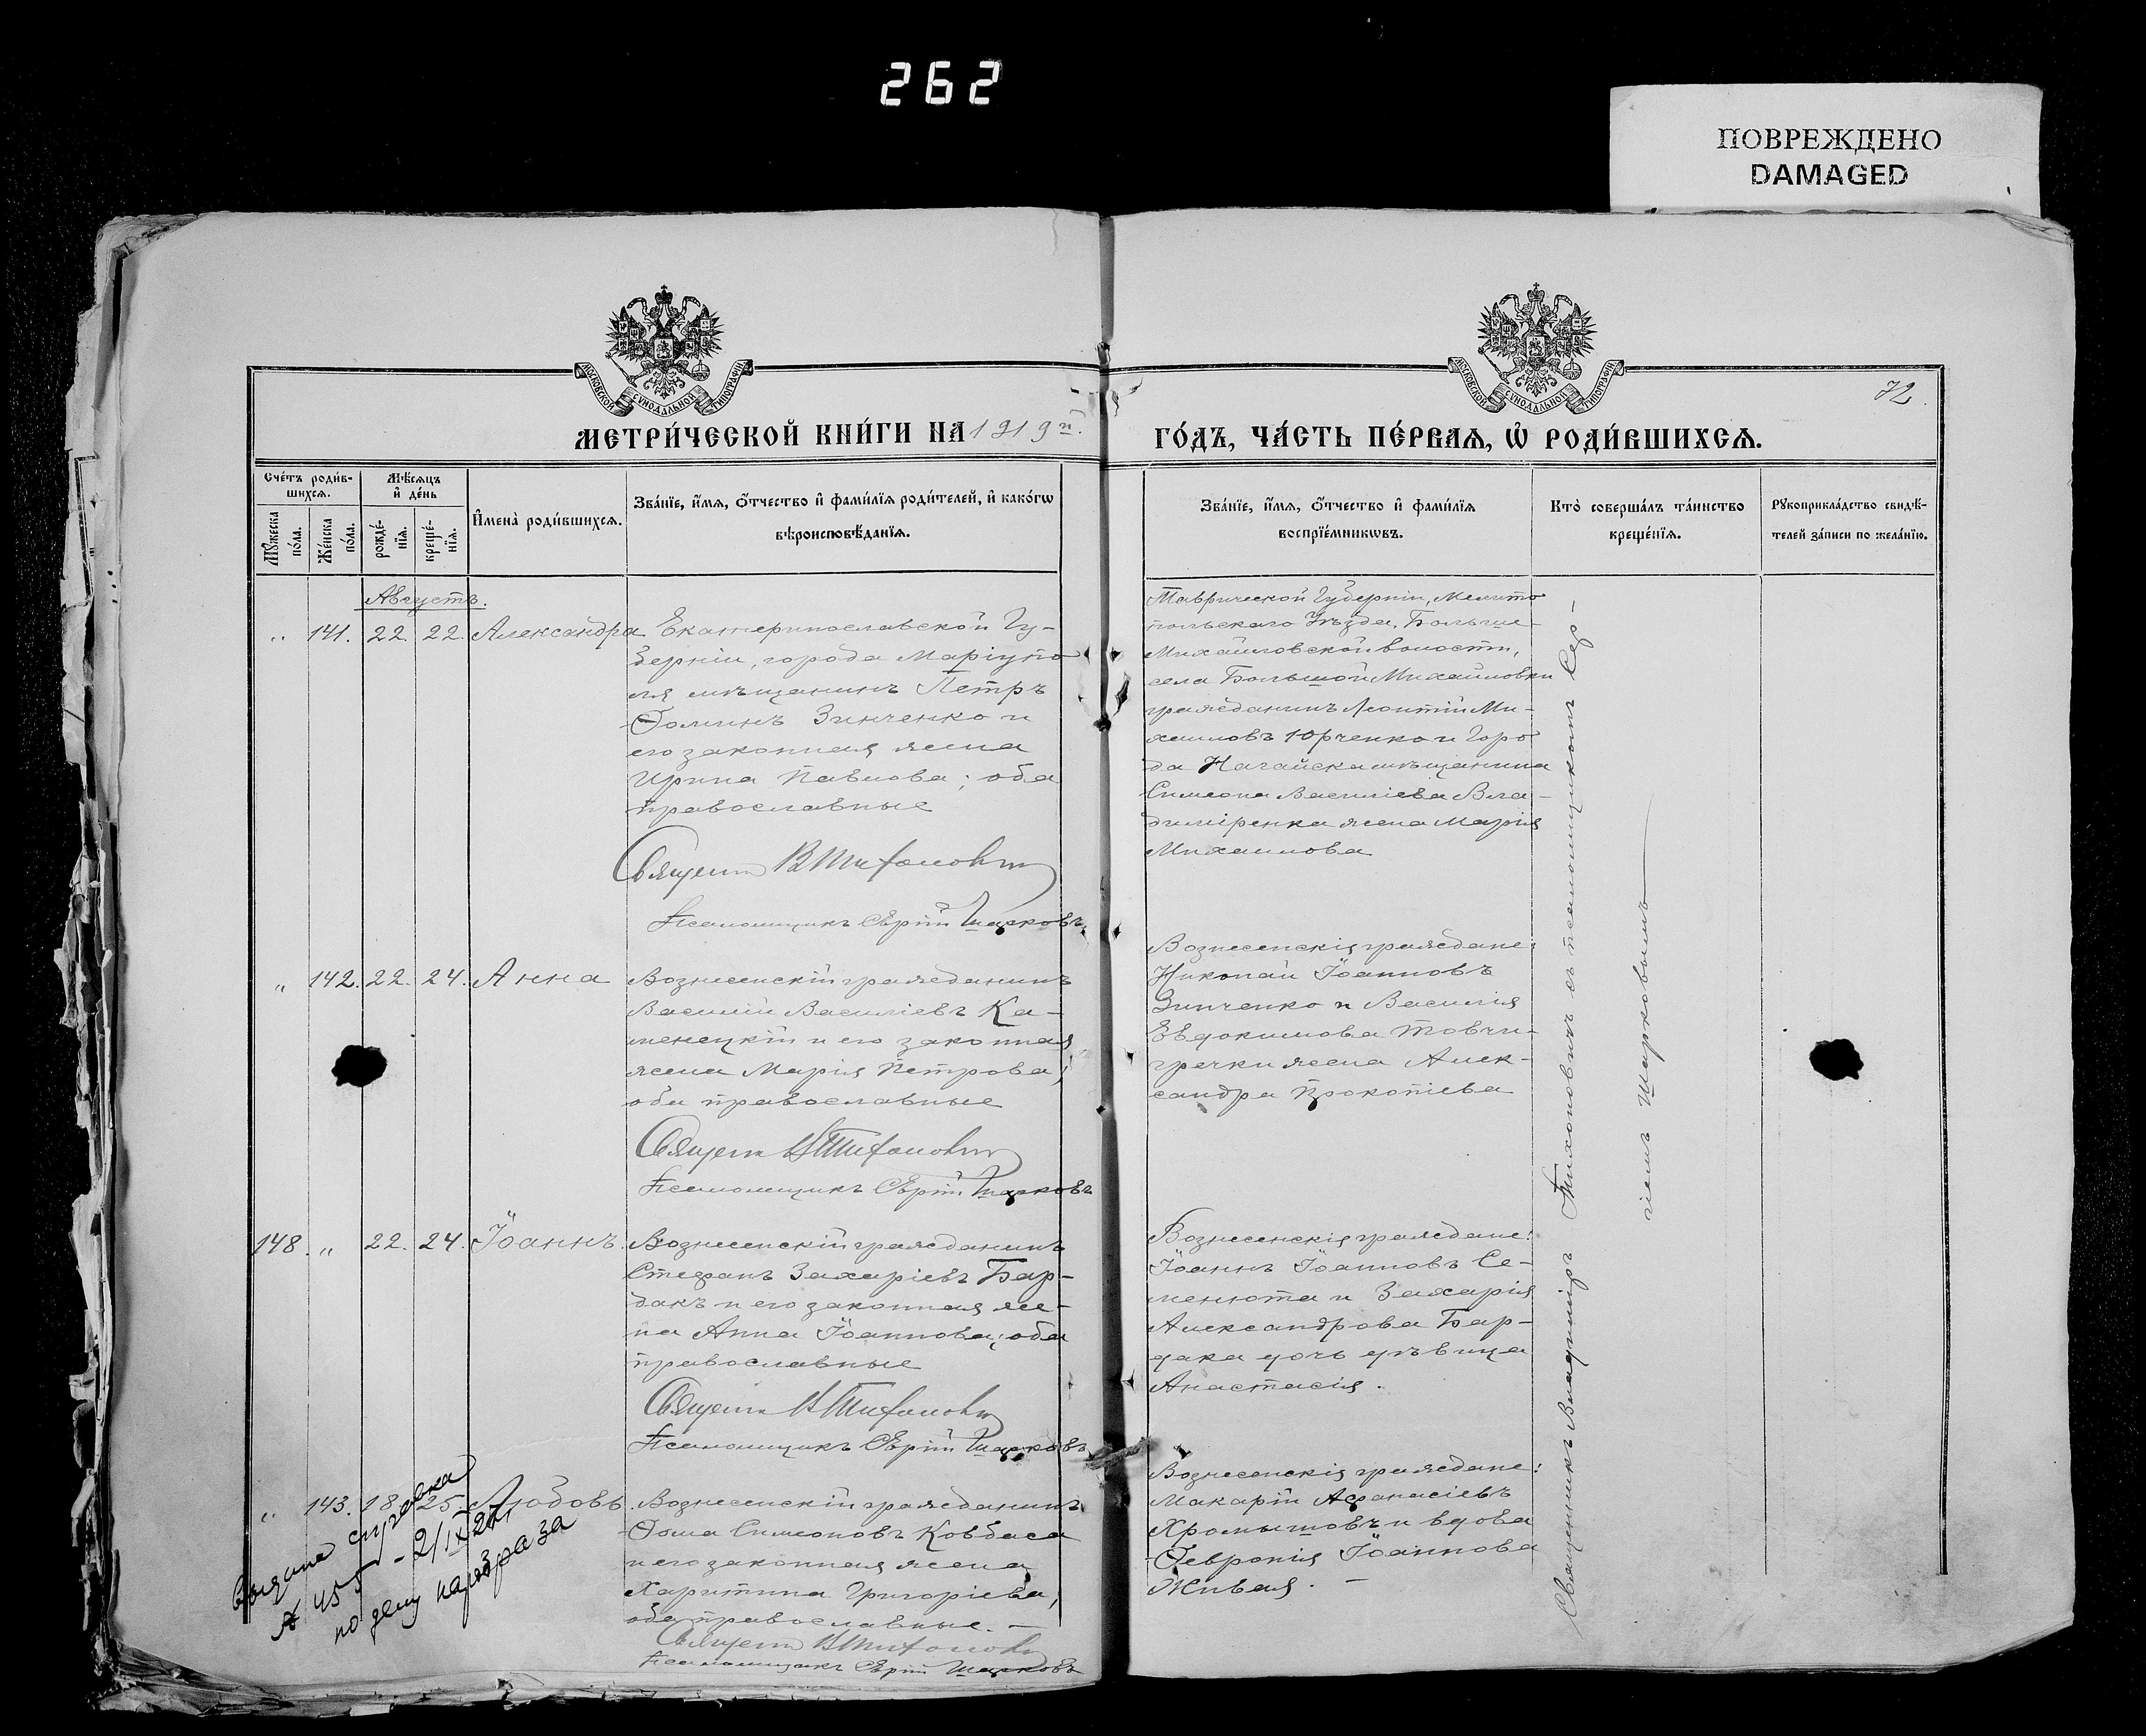 262
ПОВРЕЖДЕНО
DAMAGED
МОСКОВСКОЙ СѴНОДАЛЬНОЙ ТИПОГРАФІИ
МОСКОВСКОЙ СѴНОДАЛЬНОЙ ТИПОГРАФІИ
72
МЕТРИ́ЧЕСКОЙ КНИ́ГИ НА 1919 й.
ГО́ДЪ, ЧА́СТЬ ПЕ́РВАѦ, Ѡ҆ РОДИ́ВШИХСѦ.
Сче́тъ роди́в-
шихсѧ.
Мѣ́сѧцъ
и҆ де́нь
Мꙋ́жеска
по́ла.
Же́нска
по́ла.
рожде́-
нїѧ.
креще́-
нїѧ.
И҆мена̀ роди́вшихсѧ.
Зва́нїе, и҆́мѧ, ѻ҆́тчество и҆ фами́лїѧ роди́телей, и҆ како́гѡ
вѣроисповѣ́данїѧ.
Зва́нїе, и҆́мѧ, ѻ҆́тчество и҆ фами́лїѧ
воспрїе́мникѡвъ.
Кто̀ соверша́лъ та́инство
креще́нїѧ.
Рꙋкоприкла́дство свидѣ́-
телей за́писи по жела́нїю.
Августъ.
" 141. 22. 22. Александра
Екатеринославской Гу-
берніи, города Маріупо
ля мѣщанинъ Петръ
Ѳоминъ Зинченко и
его законная жена
Ирина Павлова; оба
православные
Священ В Тихонович
Псаломщикъ Сергій Шарковъ
Таврической Губерніи, Мелито
польскаго Уѣзда, Больше-
Михайловской волости,
села Большой Михайловки
гражданинъ Леонтій Ми-
хаиловъ Юрченко и Горо
да Ногайска мѣщанина
Симеона Василіева Вла-
диміренка жена Марія
Михаилова
" 142. 22. 24. Анна
Вознесенскій гражданинъ
Василій Василіевъ Ка-
менецкій и его законная
жена Марія Петрова;
оба православные
Священ В Тихонович
Псаломщикъ Сергій Шарковъ
Вознесенскія граждане:
Николай Іоанновъ
Зинченко и Василія
Евдокимова Товчи-
гречки жена Алек-
сандра Прокопіева
148. " 22. 24. Іоаннъ.
Вознесенскій гражданинъ
Стефанъ Захаріевъ Бар-
дакъ и его законная же-
на Анна Іоаннова; оба
православные
Священ В Тихонович
Псаломщикъ Сергій Шарковъ
Вознесенскія граждане:
Іоаннъ Іоанновъ Се-
менюта и Захарія
Александрова Бар-
дака дочь дѣвица
Анастасія.
" 143. 18. 25. Любовь.
Вознесенскій гражданинъ
Ѳома Симеоновъ Ковбаса
и его законная жена
Харитина Григоріева;
оба православные. —
Священ В Тихонович
Псаломщикъ Сергій Шарковъ
Вознесенскія граждане:
Макарій Аѳанасіевъ
Хромышовъ и вдова
Ѳевронія Іоаннова
Живая. —
Священникъ Владиміръ Тихоновичъ съ псаломщикомъ Сер-
гіемъ Шарковымъ
Выдана справка
№ 455 - 2/IX 27
по делу